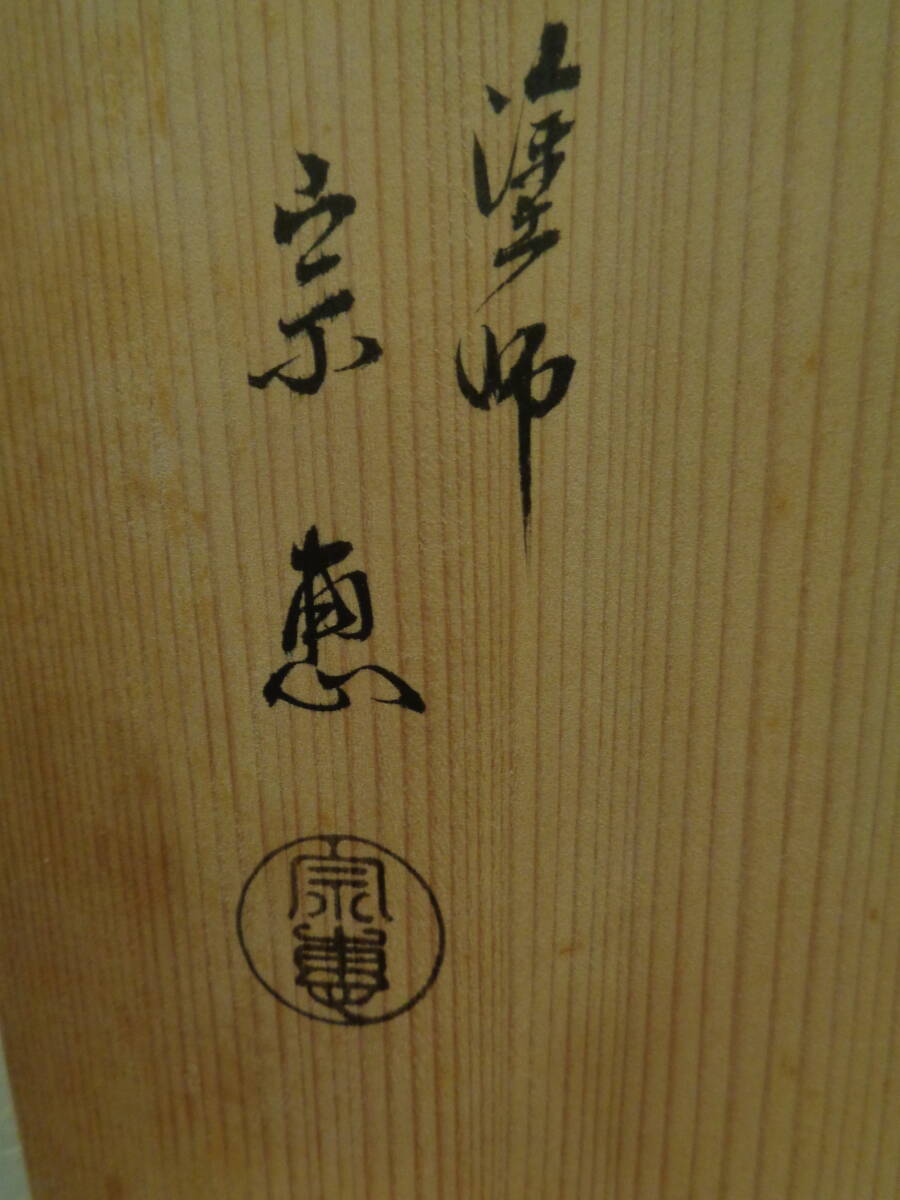 塗師
宗恵
宗恵